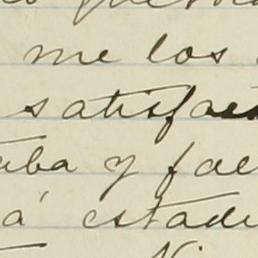 me los
satisfac
uba y fac
á estade